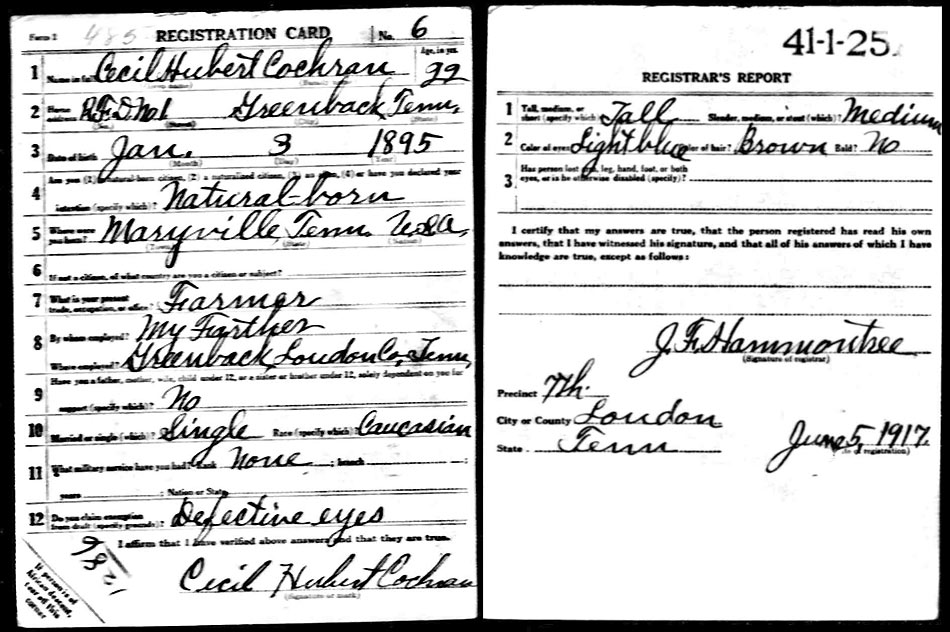 Form 1 485 REGISTRATION CARD No. 6
Age, in yrs.
1 Name in full Cecil Hubert Cochran 22
(Given name) (Family name)
2 Home address R.F.D. No. 1 Greenback, Tenn.
(No.) (Street) (City) (State)
3 Date of birth Jan. 3 1895
(Month) (Day) (Year)
4 Are you (1) a natural-born citizen, (2) a naturalized citizen, (3) an alien, (4) or have you declared your
intention (specify which)? Natural-born
5 Where were you born? Maryville, Tenn. USA,
(Town) (State) (Nation)
6 If not a citizen, of what country are you a citizen or subject?
7 What is your present trade, occupation, or office? Farmer
8 By whom employed? My Farther
Where employed? Greenback, Loudon Co., Tenn,
9 Have you a father, mother, wife, child under 12, or a sister or brother under 12, solely dependent on you for
support (specify which)? No
10 Married or single (which)? Single Race (specify which)? Caucasian
11 What military service have you had? Rank None ; branch ;
years ; Nation or State
12 Do you claim exemption from draft (specify grounds)? Defective eyes
I affirm that I have verified above answers and that they are true.
Cecil Hubert Cochran
(Signature or mark)
If person is of
African descent,
tear off this
corner
41-1-25.
REGISTRAR'S REPORT
1 Tall, medium, or short (specify which)? Tall Slender, medium, or stout (which)? Medium
2 Color of eyes? Light blue Color of hair? Brown Bald? No
3 Has person lost arm, leg, hand, foot, or both
eyes, or is he otherwise disabled (specify)?
I certify that my answers are true, that the person registered has read his own
answers, that I have witnessed his signature, and that all of his answers of which I have
knowledge are true, except as follows:
J. F. Hammontree
(Signature of registrar)
Precinct 7th.
City or County Loudon
State Tenn June 5, 1917.
(Date of registration)